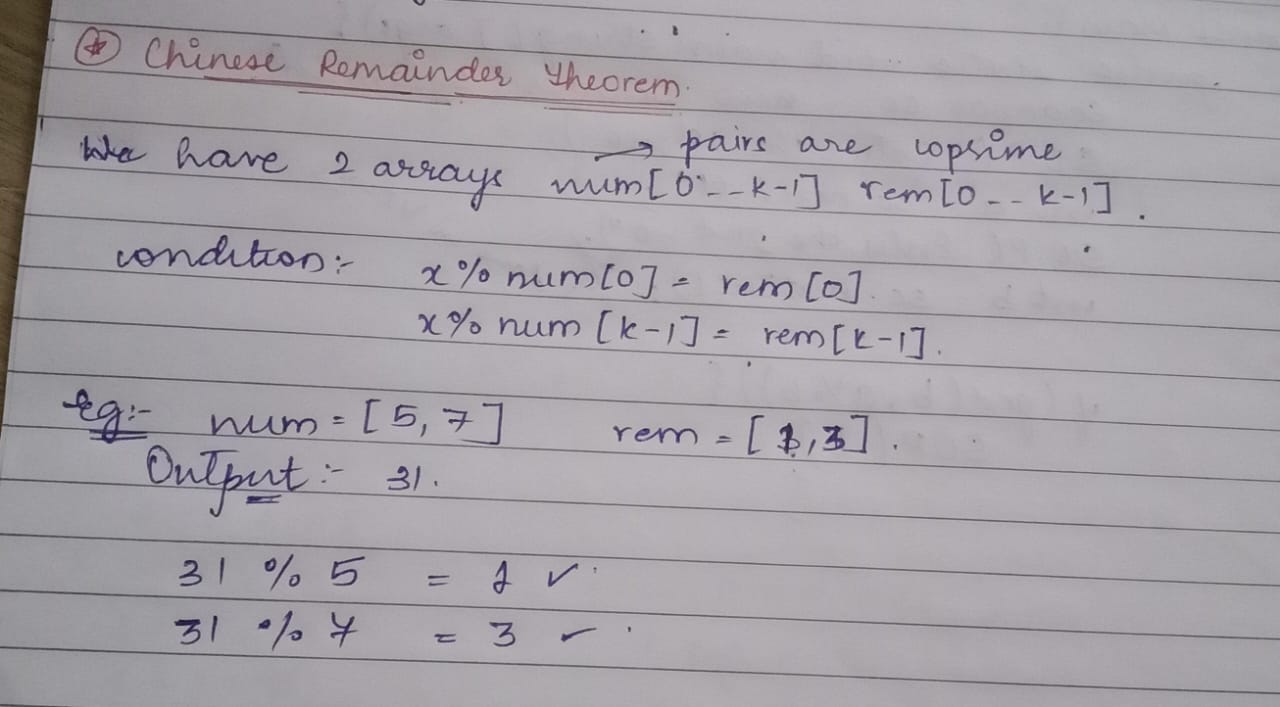 Chinese Remainder Theorem.
We have 2 arrays → pairs are coprime
num[0--k-1] rem[0--k-1].
condition:- x % num[0] = rem[0].
x % num[k-1] = rem[k-1].
eg:- num = [5,7] rem = [1,3].
Output:- 31.
31 % 5 = 1 ✓
31 % 7 = 3 ✓